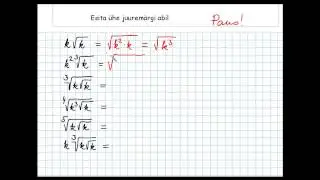 Esita ühe juuremärgi abil
Pano!
k√k = √k²·k = √k³
k² ³√k = √
³√k√k =
⁴√k³√k =
⁵√k√k =
k ³√k√k =